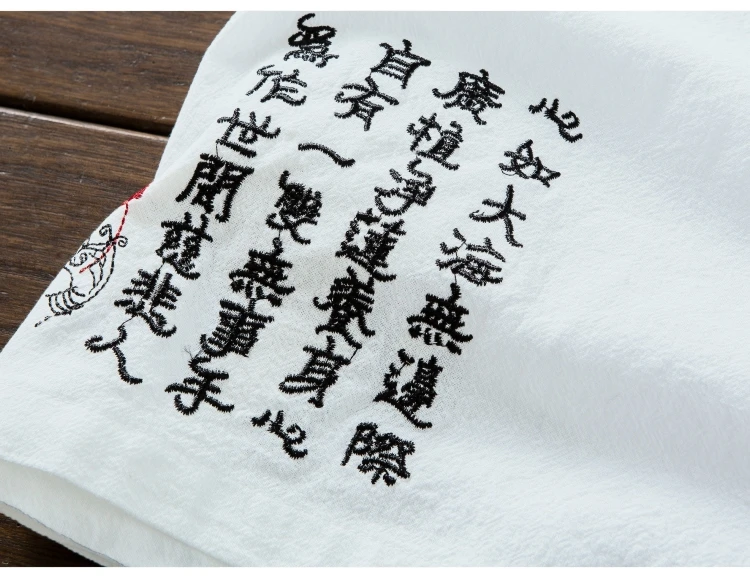 心如大海無邊際
廣植净蓮養身心
自有一雙無事手
為作世間慈悲人